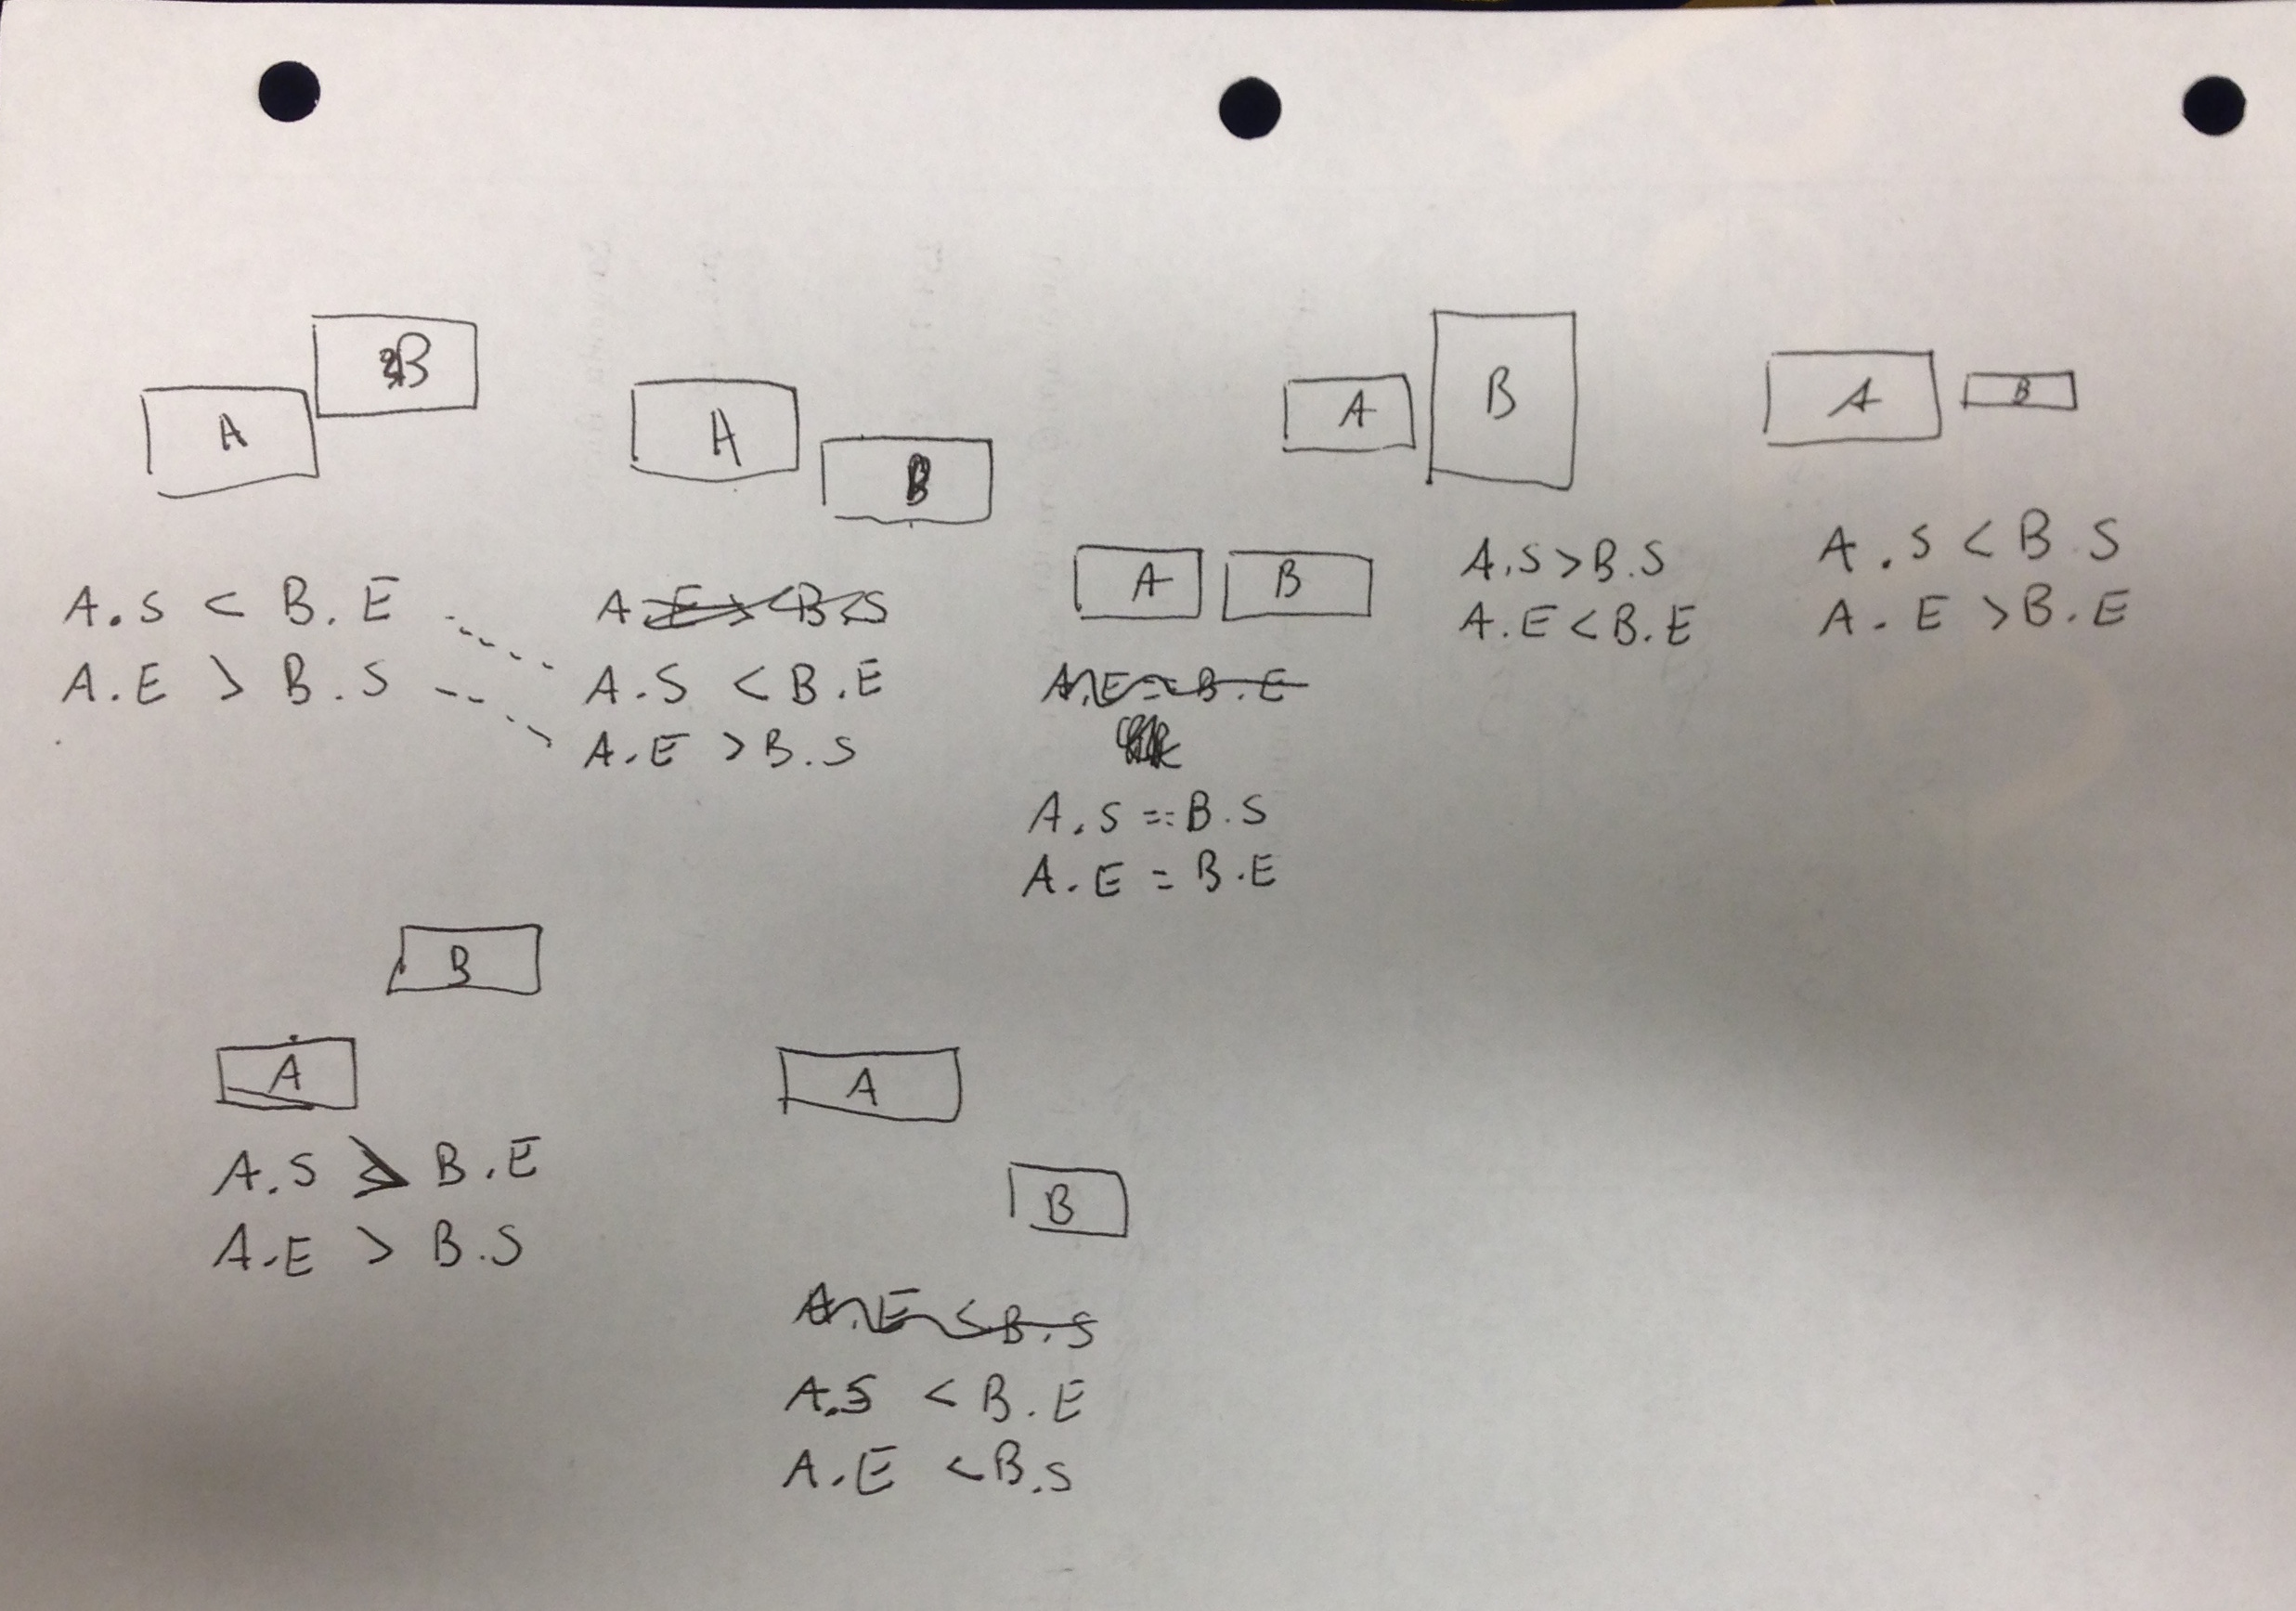 A
B
A.S < B.E
A.E > B.S
A
B
A.S < B.E
A.E > B.S
A
B
A.E == B.E
A.S == B.S
A.E = B.E
A
B
A.S > B.S
A.E < B.E
A
B
A.S < B.S
A.E > B.E
B
A
A.S > B.E
A.E > B.S
A
B
A.E < B.S
A.S < B.E
A.E < B.S